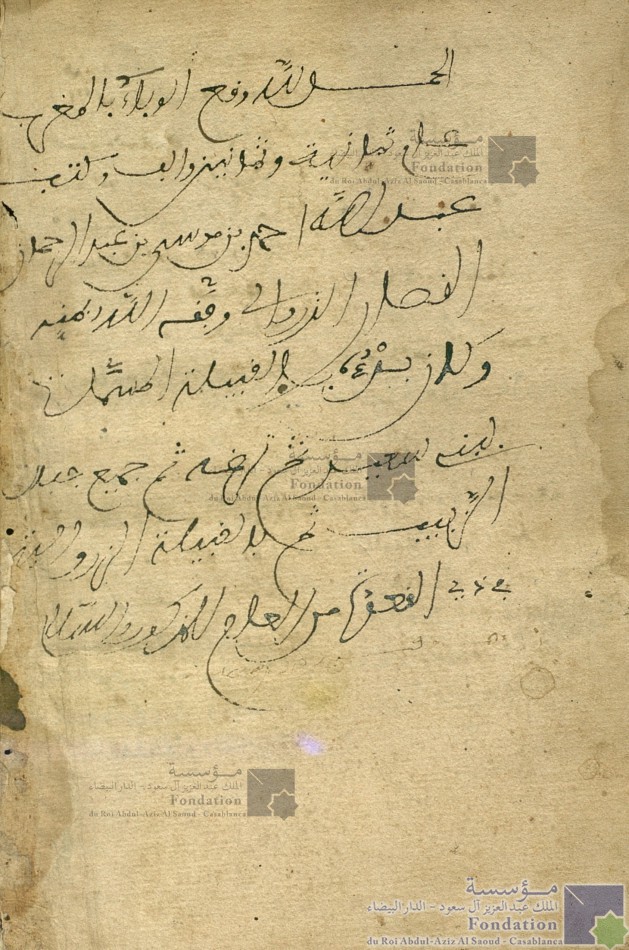 الحمد لله وقع الوباء بالمغرب
عام ثمانية وثمانين والف وكتب
عبد الله احمد بن موسى بن عبد الرحمان
وفقه الله بمنه
وكان بالقبيلة
بنى سعيد ثم ثم جميع جبال
الزبيب ثم بالقبيلة
ذي القعدة من العام المذكور والسلام
مؤسسة
الملك عبد العزيز آل سعود - الدار البيضاء
Fondation
du Roi Abdul-Aziz Al Saoud - Casablanca
مؤسسة
الملك عبد العزيز آل سعود - الدار البيضاء
Fondation
du Roi Abdul-Aziz Al Saoud - Casablanca
مؤسسة
الملك عبد العزيز آل سعود - الدار البيضاء
Fondation
du Roi Abdul-Aziz Al Saoud - Casablanca
مؤسسة
الملك عبد العزيز آل سعود - الدار البيضاء
Fondation
du Roi Abdul-Aziz Al Saoud - Casablanca